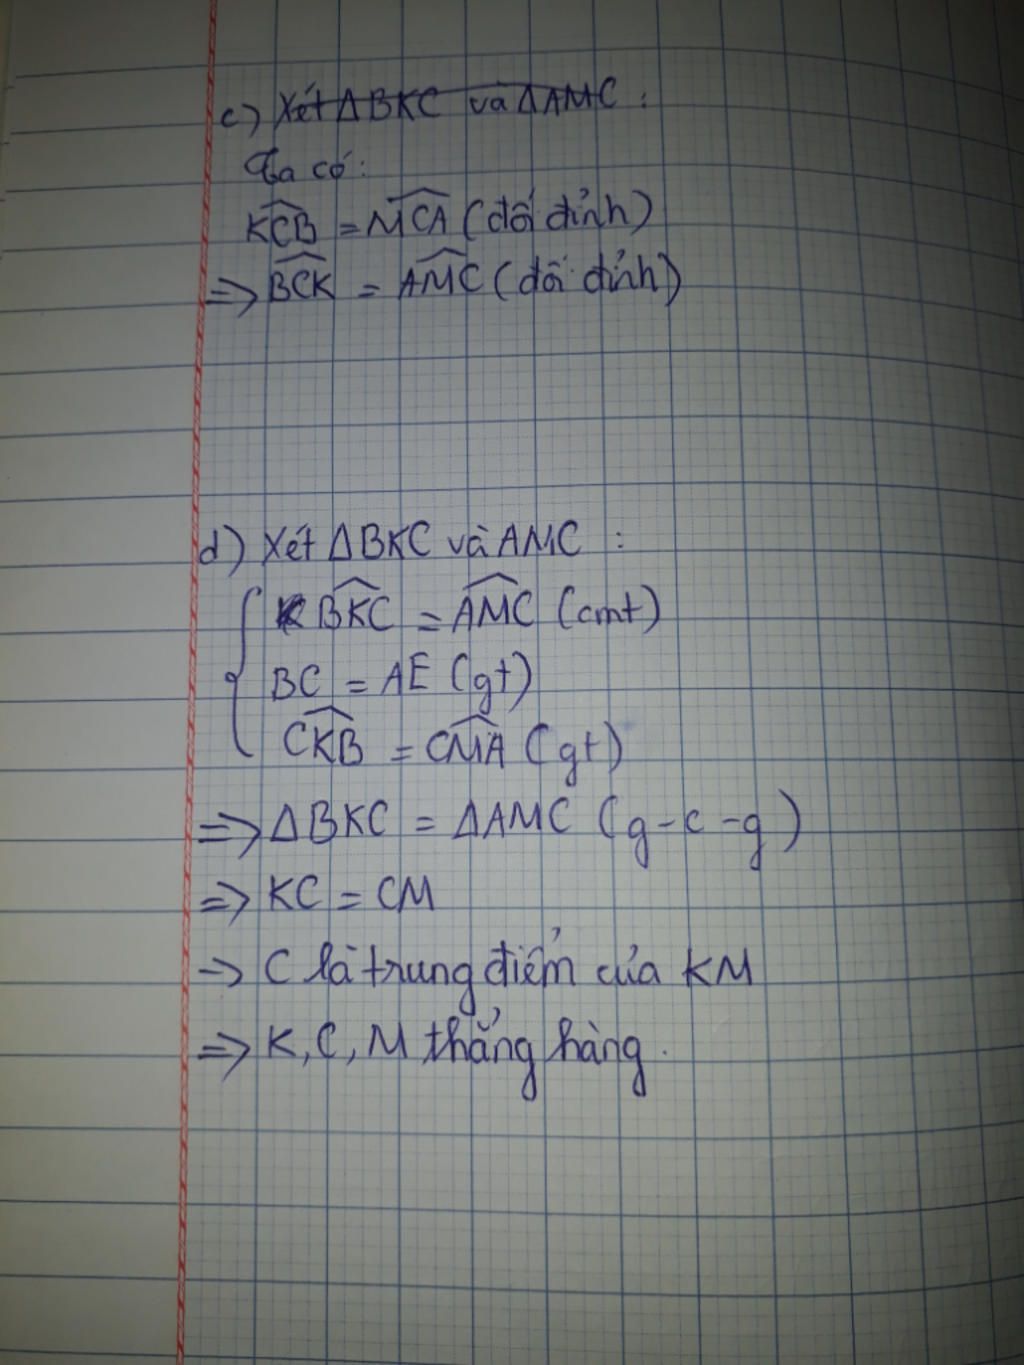 c) Xét ΔBKC và ΔAMC :
Ta có:
KCB = MCA (đối đỉnh)
=> BCK = AMC (đối đỉnh)
d) Xét ΔBKC và AMC :
BKC = AMC (cmt)
BC = AE (gt)
CKB = CMA (gt)
=> ΔBKC = ΔAMC (g-c-g)
=> KC = CM
-> C là trung điểm của KM
=> K, C, M thẳng hàng.